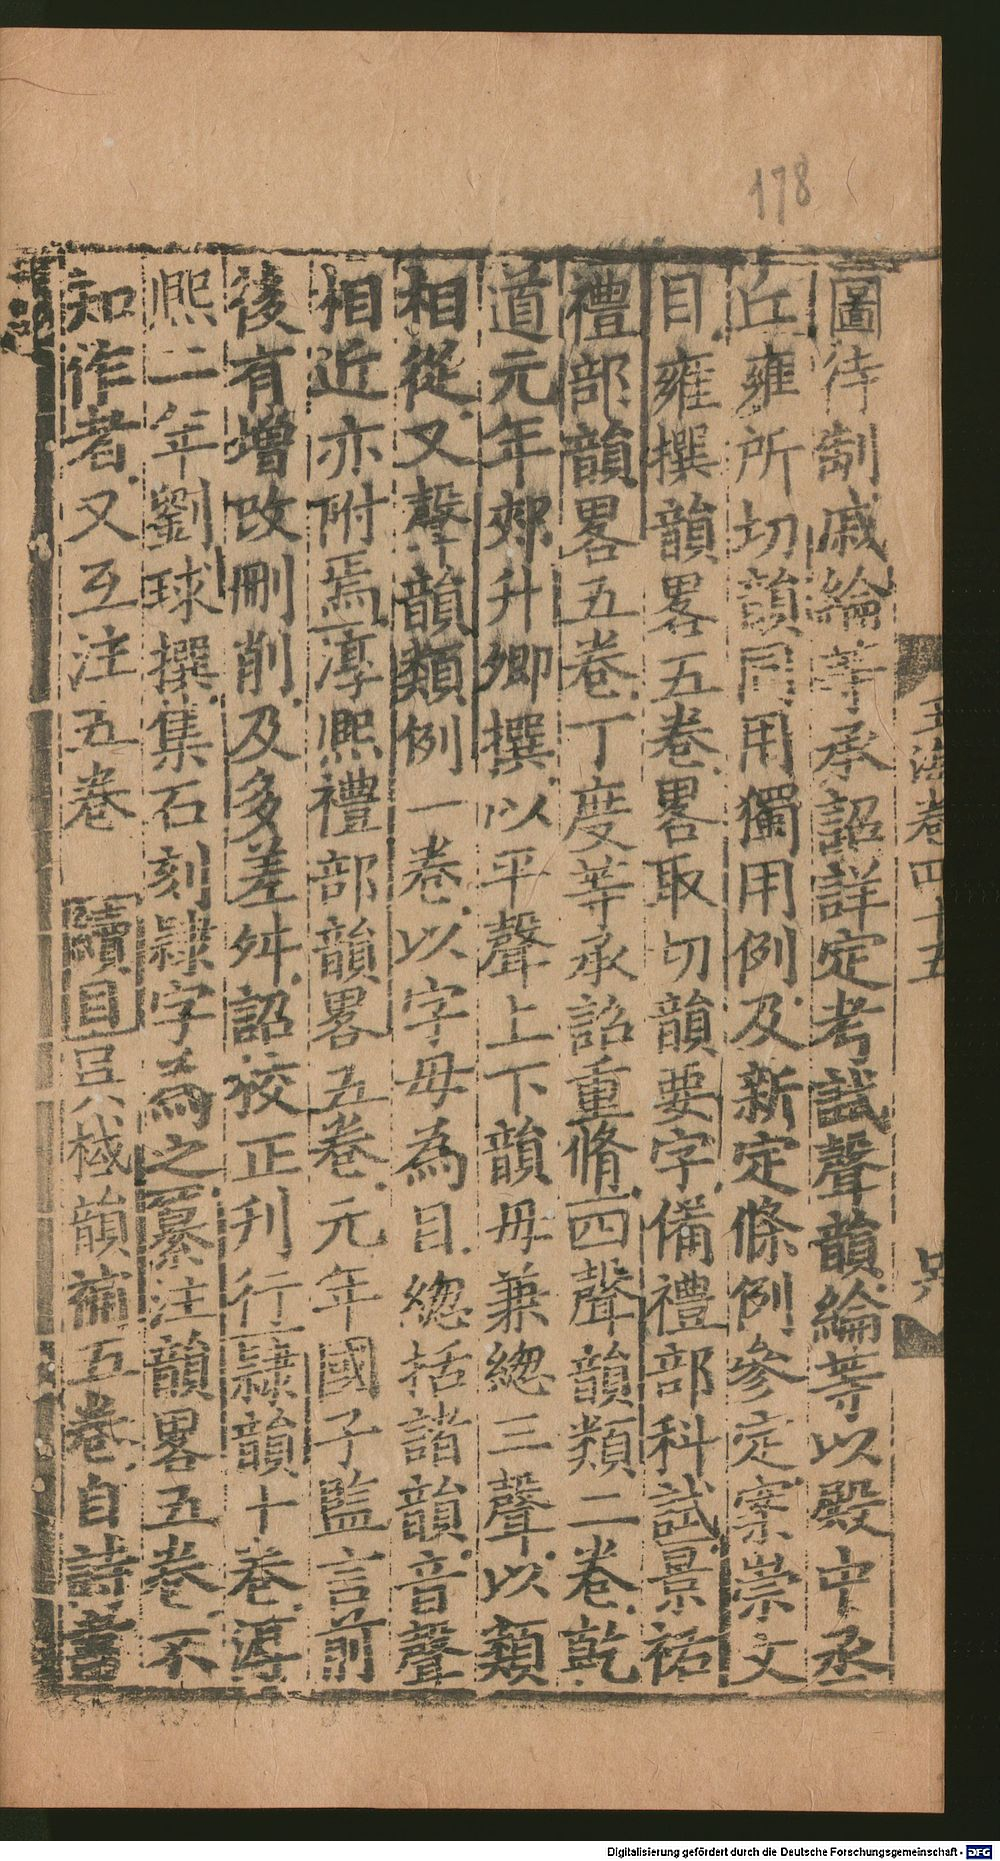 178
圖待制戚綸等承詔詳定考試聲韻綸等以殿中丞
丘雍所切韻同用獨用例及新定條例參定案崇文
目雍撰韻畧五卷畧取切韻要字備禮部科試景祐
禮部韻畧五卷丁度等承詔重脩四聲韻類二卷乾
道元年郊升卿撰以平聲上下韻毋兼緫三聲以類
相從又聲韻類例一卷以字毋為目緫括諸韻音聲
相近亦附焉淳熈禮部韻畧五卷元年國子監言前
後有增改刪削及多差舛詔校正刋行隸韻十卷淳
熈二年劉球撰集石刻隸字為之纂注韻畧五卷不
知作者又互注五卷 續目吳棫韻補五卷自詩書
玉海卷四十五
Digitalisierung gefördert durch die Deutsche Forschungsgemeinschaft - DFG